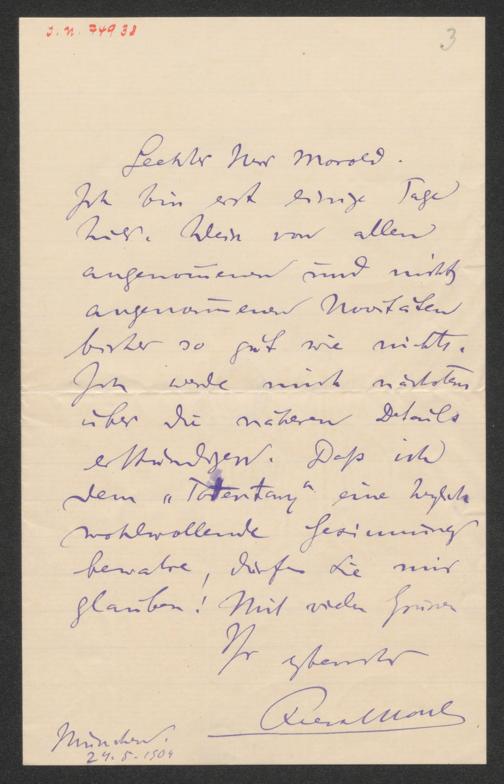 I. N. 74938
3
Geehrter Herr Morold.
Ich bin erst einige Tage
hier. Weiß von allen
angenom̄enen und nicht
angenom̄enen Novitäten
bisher so gut wie nichts.
Ich werde mich nächstens
über die näheren Details
erkundigen. Daß ich
dem „Totentanz“ eine herzlich
wohlwollende Gesinnung
bewahre, dürfen Sie mir
glauben! Mit vielen Grüssen
Ihr ergebenster
München.
24.5.1904